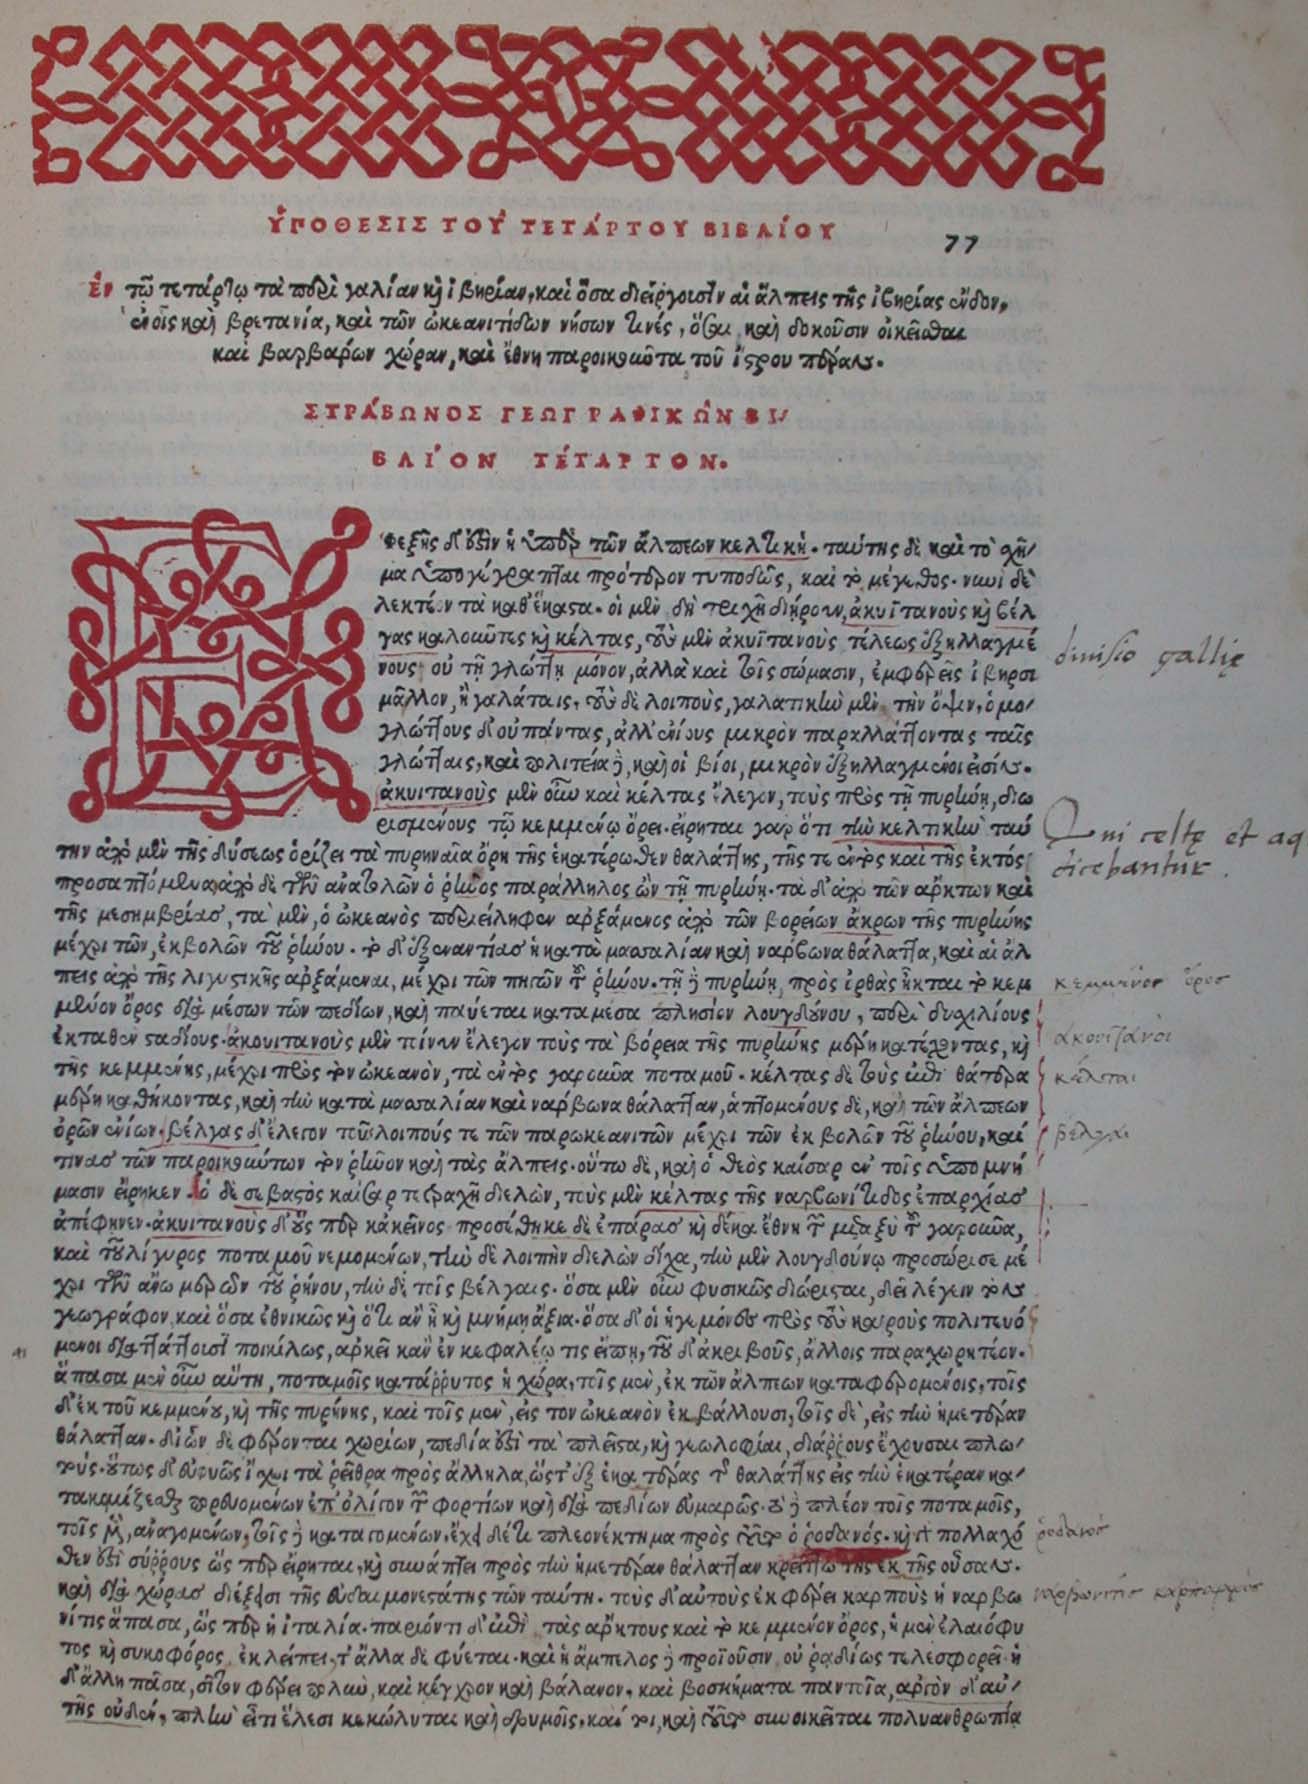 ὙΠΟΘΕΣΙΣ ΤΟΥ͂ ΤΕΤΆΡΤΟΥ ΒΙΒΛΊΟΥ
77
Ἐν τῷ τετάρτῳ τὰ περὶ γαλίαν καὶ ἰβηρίαν, καὶ ὅσα διείργουσιν αἱ ἄλπεις τῆς ἰβηρίας ἔνδον,
ἐν οἷς καὶ βρετανία, καὶ τῶν ὠκεανιτίδων νήσων τινές, ὅσαι καὶ δοκοῦσιν οἰκεῖσθαι
καὶ βαρβάρων χώραν, καὶ ἔθνη παροικοῦντα τοῦ ἴστρου πέραν.
ΣΤΡΆΒΩΝΟΣ ΓΕΩΓΡΑΦΙΚΩ͂Ν ΒΙ/
ΒΛΊΟΝ ΤΈΤΑΡΤΟΝ.
Ἐφεξῆς δ' ἐστὶν ἡ ὑπὲρ τῶν ἄλπεων κελτική. ταύτης δὲ καὶ τὸ σχῆ/
μα ὑπογέγραπται πρότερον τυπωδῶς, καὶ τὸ μέγεθος. νυνὶ δὲ
λεκτέον τὰ καθ' ἕκαστα. οἱ μὲν δὴ τριχῆ διῄρουν, ἀκυϊτανοὺς καὶ βέλ
γας καλοῦντες καὶ κέλτας, τοὺς μὲν ἀκυϊτανοὺς τέλεως ἐξηλλαγμέ
νους οὐ τῇ γλώττῃ μόνον, ἀλλὰ καὶ τοῖς σώμασιν, ἐμφερεῖς ἴβηρσι
μᾶλλον, ἢ γαλάταις, τοὺς δὲ λοιποὺς, γαλατικὴν μὲν τὴν ὄψιν, ὁμο/
γλώττους δ' οὐ πάντας, ἀλλ' ἐνίους μικρὸν παραλλάττοντας ταῖς
γλώτταις, καὶ πολιτεία δὲ, καὶ οἱ βίοι, μικρὸν ἐξηλλαγμένοι εἰσίν.
ἀκυιτανοὺς μὲν οὖν καὶ κέλτας ἔλεγον, τοὺς πρὸς τῇ πυρήνῃ, διω
ρισμένους τῷ κεμμένῳ ὄρει. εἴρηται γὰρ ὅτι τὴν κελτικὴν ταύ
την ἀπὸ μὲν τῆς δύσεως ὁρίζει τὰ πυρηναῖα ὄρη τῆς ἑκατέρωθεν θαλάττης, τῆς τε ἐντὸς καὶ τῆς ἐκτός
προσαπτόμενα, ἀπὸ δὲ τῶν ἀνατολῶν ὁ ῥῆνος παράλληλος ὢν τῇ πυρήνῃ. τὰ δ' ἀπὸ τῶν ἄρκτων καὶ
τῆς μεσημβρίας, τὰ μὲν, ὁ ὠκεανὸς περιείληφεν ἀρξάμενος ἀπὸ τῶν βορείων ἄκρων τῆς πυρήνης
μέχρι τῶν, ἐκβολῶν τοῦ ῥήνου. τὸ δ' ἐξεναντίας ἡ κατὰ μασσαλίαν καὶ νάρβωνα θάλαττα, καὶ αἱ ἄλ
πεις ἀπὸ τῆς λιγυστικῆς ἀρξάμεναι, μέχρι τῶν πηγῶν τοῦ ῥήνου. τῇ δὲ πυρήνῃ, πρὸς ὀρθὰς ἧκται τὸ κεμ
μένον ὄρος διὰ μέσων τῶν πεδίων, καὶ παύεται κατὰ μέσα πλησίον λουγδούνου, περὶ δισχιλίους
ἐκταθὲν σταδίους. ἀκουιτανοὺς μὲν τοίνυν ἔλεγον τοὺς τὰ βόρεια τῆς πυρήνης μέρη κατέχοντας, καὶ
τῆς κεμμένης, μέχρι πρὸς τὸν ὠκεανὸν, τὰ ἐντὸς γαρούνα ποταμοῦ. κέλτας δὲ τοὺς ἐπὶ θάτερα
μέρη καθήκοντας, καὶ τὴν κατὰ μασσαλίαν καὶ νάρβωνα θάλατταν, ἁπτομένους δὲ, καὶ τῶν ἄλπεων
ὀρῶν ἐνίων. βέλγας δ' ἔλεγον τοὺς λοιπούς τε τῶν παρωκεανιτῶν μέχρι τῶν ἐκβολῶν τοῦ ῥήνου, καί
τινας τῶν παροικούντων τὸν ῥῆνον καὶ τὰς ἄλπεις. οὕτω δὲ, καὶ ὁ θεὸς καίσαρ ἐν τοῖς ὑπομνή
μασιν εἴρηκεν. ὁ δὲ σεβαστὸς καῖσαρ τετραχῆ διελὼν, τοὺς μὲν κέλτας τῆς ναρβωνίτιδος ἐπαρχίας
ἀπέφηνεν. ἀκυιτανοὺς δ' οὕς περ κἀκεῖνος προσέθηκε δὲ ἐπάρας καὶ δέκα ἔθνη τῶν μεταξὺ τοῦ γαρούνα,
καὶ τοῦ λίγυρος ποταμοῦ νεμομένων, τὴν δὲ λοιπὴν διελὼν δίχα, τὴν μὲν λουγδούνῳ προσώρισε μέ
χρι τῶν ἄνω μερῶν τοῦ ῥήνου, τὴν δὲ τοῖς βέλγαις. ὅσα μὲν οὖν φυσικῶς διώρισται, δεῖ λέγειν τὸν
γεωγράφον, καὶ ὅσα ἐθνικῶς καὶ ὅτι ἂν ᾖ καὶ μνήμη ἄξια. ὅσα δ' οἱ ἡγεμόνες πρὸς τοὺς καιροὺς πολιτευό
μενοι διατάττουσι ποικίλως, ἀρκεῖ κἂν ἐν κεφαλέῳ τις εἴπῃ, τοῦ δ' ἀκριβοῦς, ἄλλοις παραχωρητέον.
ἅπασα μὲν οὖν αὕτη, ποταμοῖς κατάρρυτος ἡ χώρα, τοῖς μὲν, ἐκ τῶν ἄλπεων καταφερομένοις, τοῖς
δ' ἐκ τοῦ κεμμένου, καὶ τῆς πυρήνης, καὶ τοῖς μὲν, εἰς τὸν ὠκεανὸν ἐκβάλλουσι, τοῖς δὲ, εἰς τὴν ἡμετέραν
θάλατταν. δι' ὧν δὲ φέρονται χωρίων, πεδία ἐστὶ τὰ πλεῖστα, καὶ γεωλοφίαι, διάρρους ἔχουσαι πλω/
τούς. οὕτως δ' εὐφυῶς ἴσχει τὰ ῥεῖθρα πρὸς ἄλληλα, ὥστ' ἐξ ἑκατέρας τῆς θαλάττης εἰς τὴν ἑκατέραν κα/
τακομίζεσθαι πορευομένων ἐπ' ὀλίγον τῶν φορτίων καὶ διὰ πεδίων εὐμαρῶς. τὸ δὲ πλέον τοῖς ποταμοῖς,
τοῖς μὲν, ἀναγομένων, τοῖς δὲ καταγομένων. ἔχει δέ τι πλεονέκτημα πρὸς τοῦτο ὁ ῥοδανός. καὶ γὰρ πολλαχό
θεν ἐστὶ σύρρους ὥς περ εἴρηται, καὶ συνάπτει πρὸς τὴν ἡμετέραν θάλατταν κρείττω τῆς ἐκτὸς οὖσαν.
καὶ διὰ χώρας διέξεισι τῆς εὐδαιμονεστάτης τῶν ταύτῃ. τοὺς δ' αὐτοὺς ἐκφέρει καρποὺς ἡ ναρβω
νίτις ἅπασα, ὥς περ ἡ ἰταλία. παριόντι δ' ἐπὶ τὰς ἄρκτους καὶ τὸ κεμμένον ὄρος, ἡ μὲν ἐλαιόφυ
τος καὶ συκοφόρος ἐκλείπει, τ' ἄλλα δὲ φύεται. καὶ ἡ ἄμπελος δὲ προϊοῦσιν οὐ ῥαδίως τελεσφορεῖ. ἡ
δ' ἄλλη πᾶσα, σῖτον φέρει πολὺν, καὶ κέγχρον καὶ βάλανον, καὶ βοσκήματα παντοῖα, ἀργὸν δ' αὐ/
τῆς οὐδὲν, πλὴν εἴ τι ἕλεσι κεκώλυται καὶ δρυμοῖς, καί τοι, καὶ τοῦτο συνοικεῖται πολυανθρωπίᾳ
diuisio gallię
Qui celtę et aq
dicebantur.
κεμμένον ὄρος
ακουιτανοὶ
κέλται
βέλγαι
ῥοδανός
ναρβωνίτις